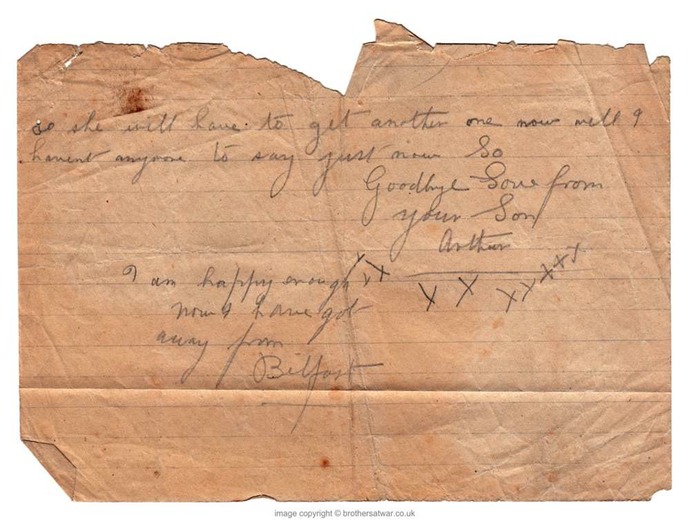 so she will have to get another one now well I
havent anymore to say just now So
Goodbye Love from
your Son
Arthur
X X X X X X X X X X
I am happy enough
now I have got
away from
Bilfast
image copyright © brothersatwar.co.uk